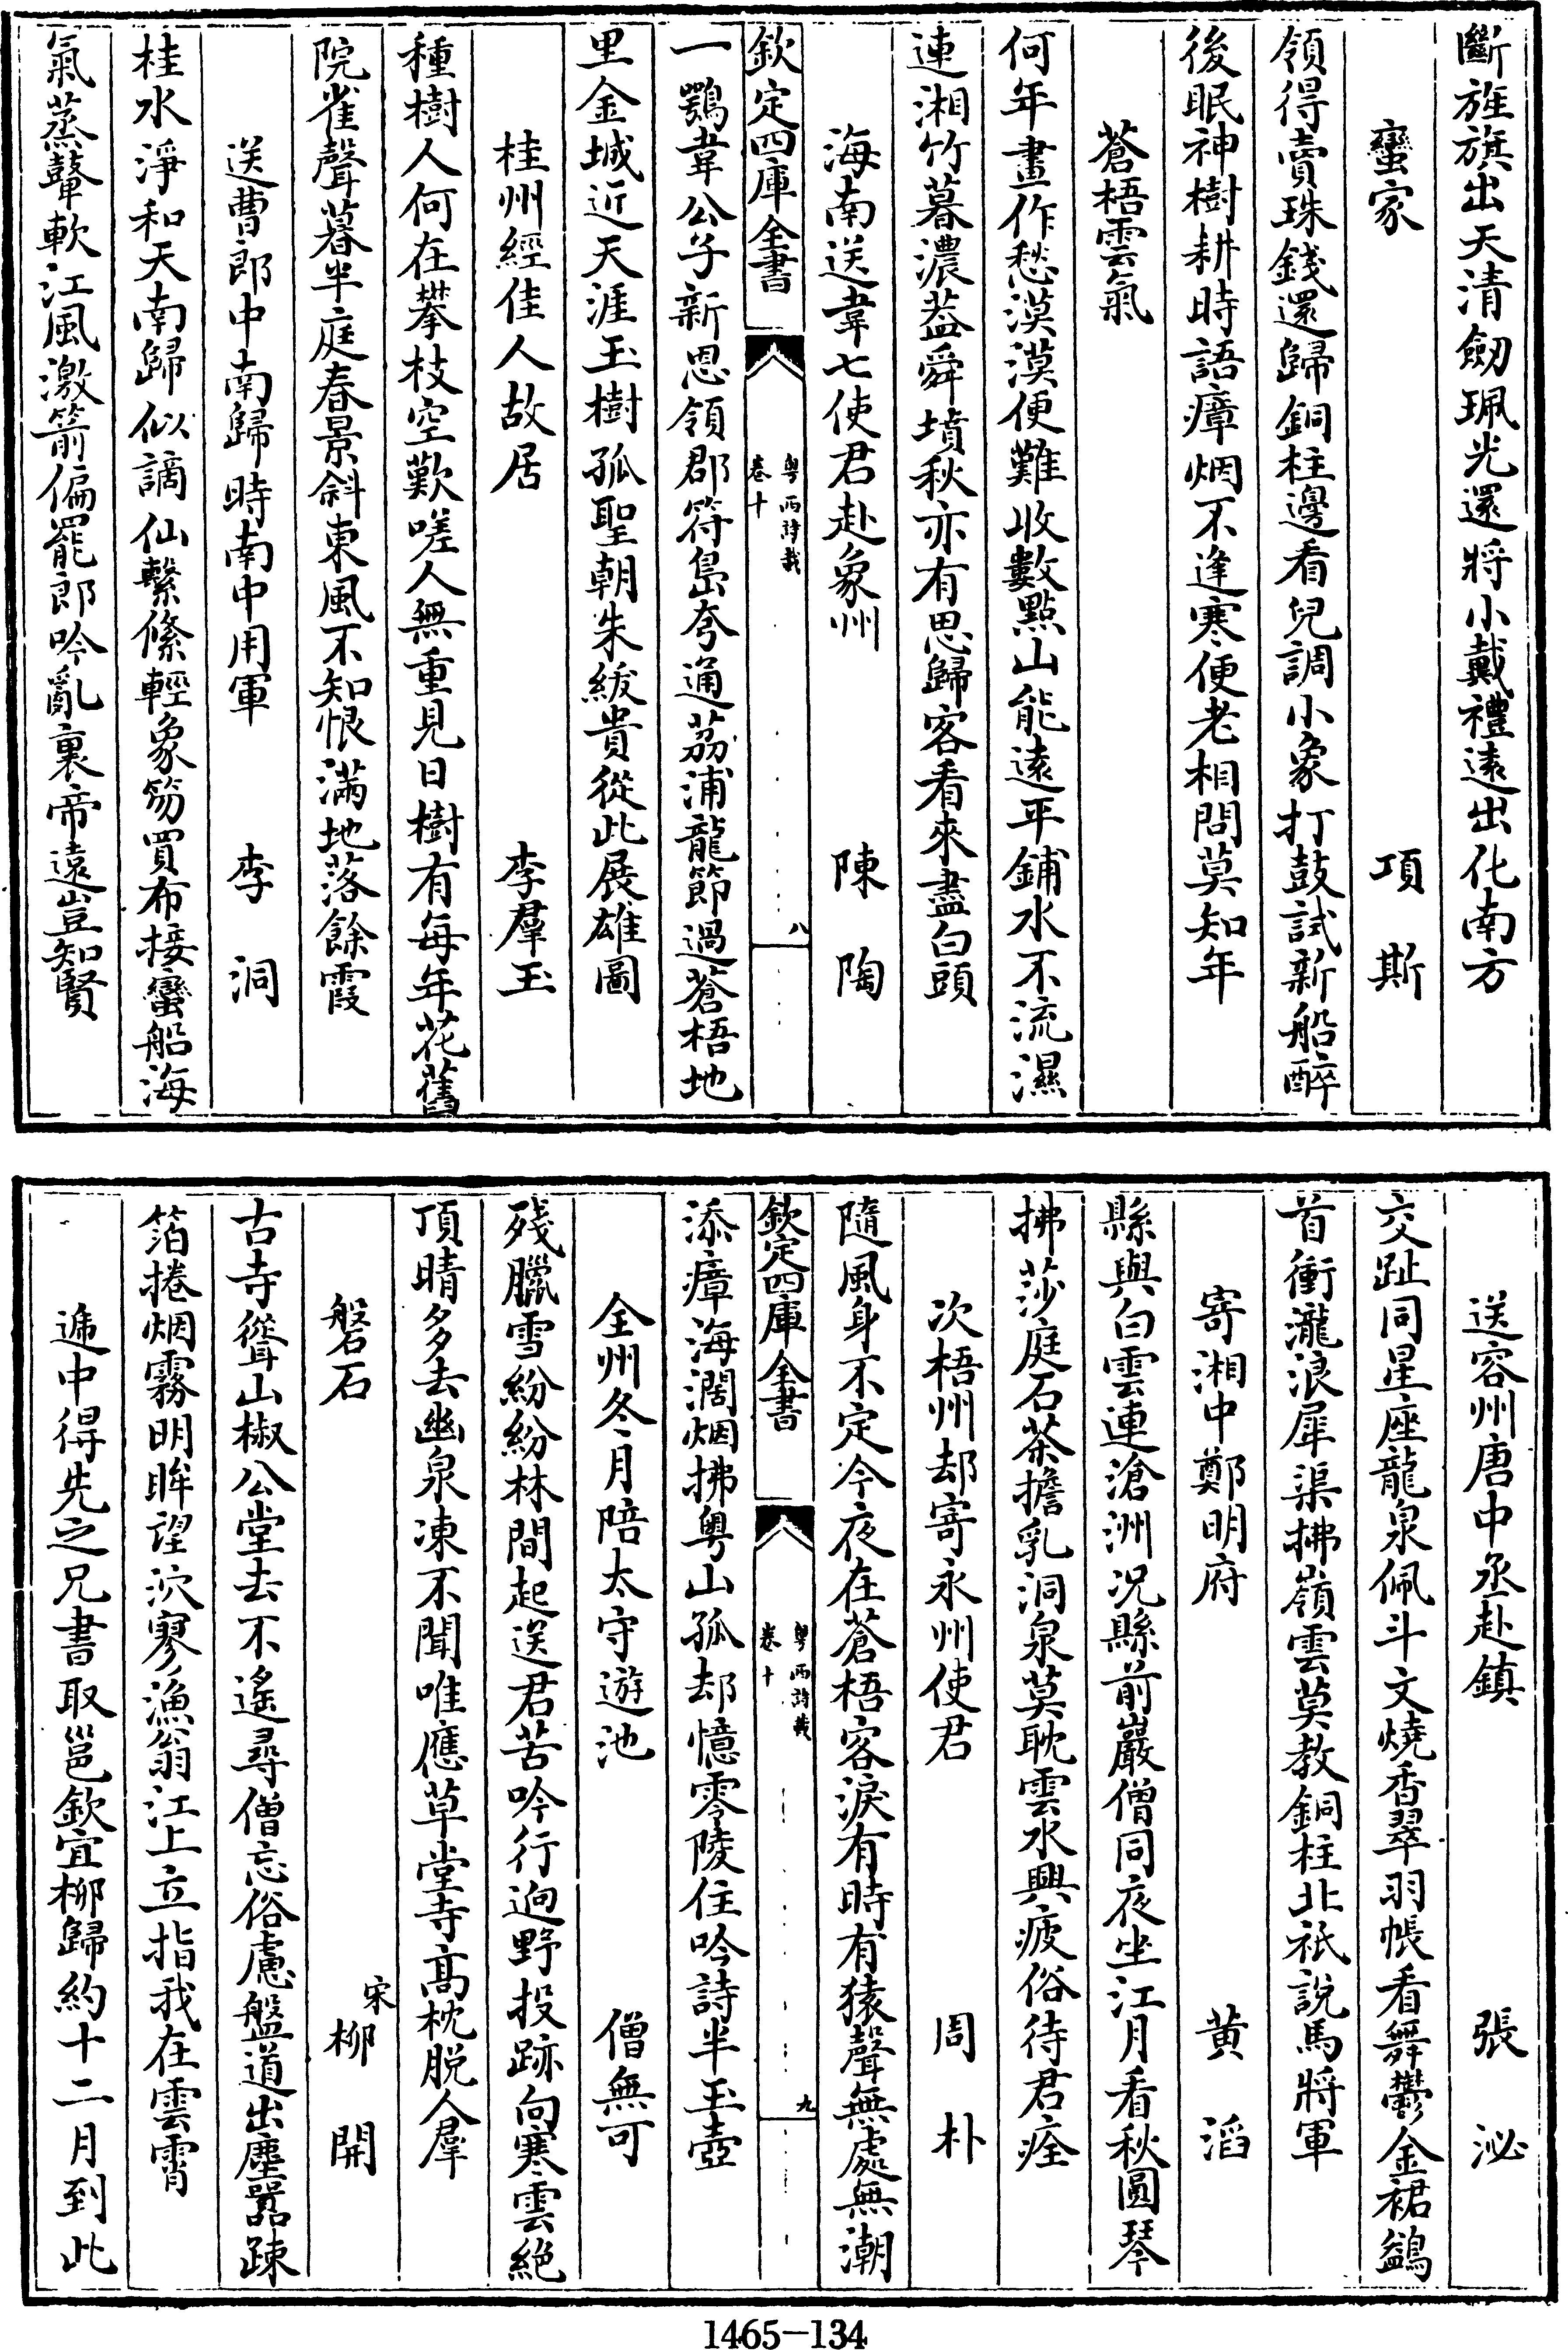 斷旌旗出天清劒珮光還將小戴禮遠出化南方
蠻家　項斯
領得賣珠錢還歸銅柱邊看兒調小象打鼓試新船醉
後眠神樹耕時語瘴烟不逢寒便老相問莫知年
蒼梧雲氣
何年畫作愁漠漠便難收數點山能遠平鋪水不流濕
連湘竹暮濃葢舜墳秋亦有思歸客看來盡白頭
海南送韋七使君赴象州　陳陶
欽定四庫全書　粤西詩載　卷十　八
一鶚韋公子新恩領郡符島夸通荔浦龍節過蒼梧地
里金城近天涯玉樹孤聖朝朱紱貴從此展雄圖
桂州經佳人故居　李羣玉
種樹人何在攀枝空歎嗟人無重見日樹有每年花舊
院雀聲暮半庭春景斜東風不知恨滿地落餘霞
送曹郎中南歸時南中用軍　李洞
桂水淨和天南歸似謫仙繫絛輕象笏買布接蠻船海
氣蒸鼙軟江風激箭偏罷郎吟亂裏帝遠豈知賢
送容州唐中丞赴鎮　張泌
交趾同星座龍泉佩斗文燒香翠羽帳看舞鬱金裙鷁
首衝瀧浪犀渠拂嶺雲莫教銅柱北祇說馬將軍
寄湘中鄭明府　黄滔
縣與白雲連滄洲况縣前巖僧同夜坐江月看秋圓琴
拂莎庭石茶擔乳洞泉莫耽雲水興疲俗待君痊
次梧州却寄永州使君　周朴
隨風身不定今夜在蒼梧客淚有時有猿聲無處無潮
欽定四庫全書　粤西詩載　卷十　九
添瘴海濶烟拂粤山孤却憶零陵住吟詩半玉壺
全州冬月陪太守遊池　僧無可
殘臘雪紛紛林間起送君苦吟行迥野投跡向寒雲絶
頂晴多去幽泉凍不聞唯應草堂寺髙枕脱人羣
磐石　宋柳開
古寺聳山椒公堂去不遙尋僧忘俗慮盤道出塵囂踈
箔捲烟霧明眸望泬寥漁翁江上立指我在雲霄
逓中得先之兄書取邕欽宜柳歸約十二月到此
1465-134